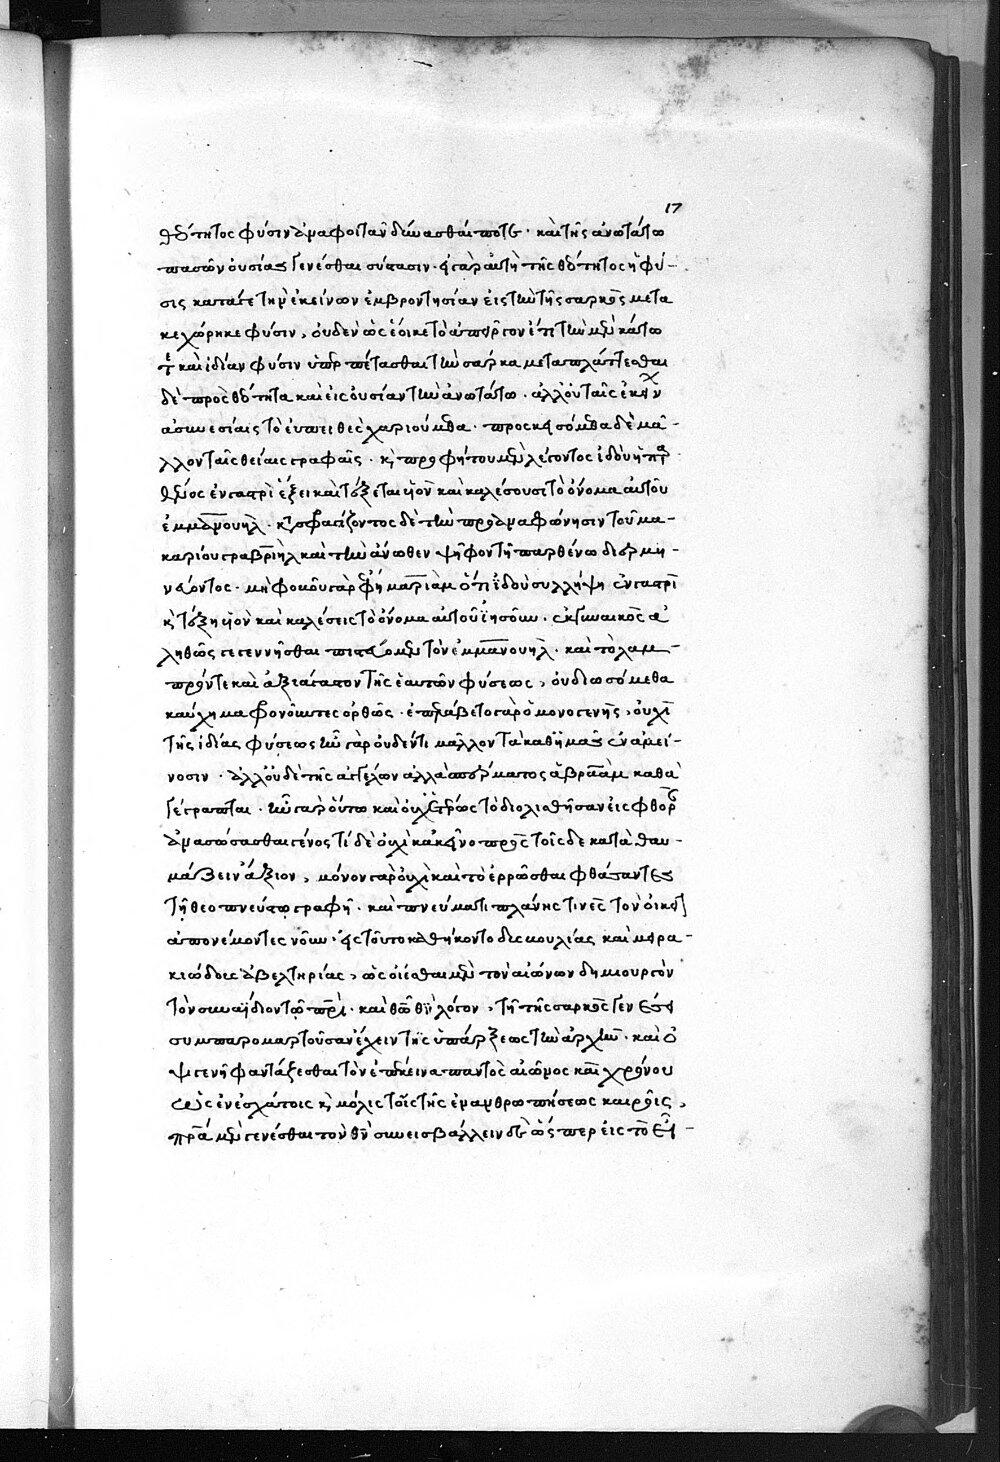 17
θεότητος φύσιν ἀναφοιτᾶν δύνασθαί ποτε · καὶ τῆς ἀνωτάτω
πασῶν οὐσίας γενέσθαι σύστασιν · εἰ γὰρ αὐτὴ τῆς θεότητος ἡ φύ-
σις κατά γε τὴν ἐκείνων ἐμβροντησίαν εἰς τὴν τῆς σαρκὸς μετα
κεχώρηκε φύσιν, οὐδὲν ὡς ἔοικε τὸ ἀπεῖργον ἐπὶ τὴν μὲν κάτω
τε καὶ ἰδίαν φύσιν ὑπερπέτασθαι τὴν σάρκα μεταπλάττεσθαι
δὲ πρὸς θεότητα καὶ εἰς οὐσίαν τὴν ἀνωτάτω · ἀλλ' οὐ ταῖς ἐκείνων
ἀσυνεσίαις τὸ εὐπειθὲς χαριούμεθα · προσκεισόμεθα δὲ μᾶ-
λλον ταῖς θείαις γραφαῖς · κ προφήτου μὲν λέγοντος ἰδοὺ ἡ παρ
θένος ἐν γαστρὶ ἕξει καὶ τέξεται υἱὸν καὶ καλέσουσι τὸ ὄνομα αὐτοῦ
ἐμμανουήλ · κατασφαγίζοντος δὲ τὴν προαναφώνησιν τοῦ μα-
καρίου γαβριὴλ καὶ τὴν ἄνωθεν ψῆφον τῇ παρθένω διερμη-
νεύοντος · μὴ φοβοῦ γὰρ ἔφη μαριὰμ ὅτι ἰδοὺ συλλήψη ἐν γαστρὶ
κ τέξη υἱὸν καὶ καλέσεις τὸ ὄνομα αὐτοῦ ἰησοῦν · ἐκ γυναικὸς ἀ
ληθῶς γεγεννῆσθαι πιστεύομεν τὸν ἐμμανουήλ · καὶ τὸ λαμ-
πρόν τε καὶ ἀξιάγαστον τῆς ἑαυτῶν φύσεως, οὐ διωσόμεθα
καύχημα φρονοῦντες ὀρθῶς · ἐπελάβετο γὰρ ὁ μονογενὴς, οὐχὶ
τῆς ἰδίας φύσεως ἦν γὰρ οὐδέν τι μᾶλλον τὰ καθ' ἡμᾶς ἐν ἀμεί-
νοσιν · ἀλλ' οὐδὲ τῆς ἀγγέλων ἀλλὰ σπέρματος ἀβραὰμ καθὰ
γέγραπται · ἦν γὰρ οὕτω καὶ οὐχ ἑτέρως τὸ διολισθῆσαν εἰς φθορὰν
ἀνασώσασθαι γένος τί δὲ οὐχὶ κἀκεῖνο πρὸς τοῖς δε καταθαυ-
μάζειν ἄξιον, μόνον γὰρ οὐχὶ καὶ τὸ ἐρρῶσθαι φθάσαντες
τῇ θεοπνεύστω γραφῇ · καὶ πνεύμασι πλάνης τινὲς τὸν οἰκεῖ
ἀπονέμοντες νοῦν · εἰς τοῦτο καθήκοντο δεισκουλίας καὶ μειρα-
κιώδους ἀβελτηρίας, ὡς οἴεσθαι μὲν τὸν αἰώνων δημιουργὸν
τὸν συναΐδιον τῷ πρὶ · καὶ θῶ θν λόγον, τῇ τῆς σαρκὸς γενέσει
συμπαρομαρτοῦσαν ἔχειν τῆς ὑπάρξεως τὴν ἀρχὴν · καὶ ὀ
ψιγενῆ φαντάζεσθαι τὸν ἐπέκεινα παντὸς αἰῶνος καὶ χρόνου
ὡς ἐν ἐσχάτοις κ μόλις τοῖς τῆς ἐνανθρωπήσεως καιροῖς,
πρᾶ μὲν γενέσθαι τὸν θν συνεισβάλλειν δὲ ὥσπερ εἰς τὸ εἶ-